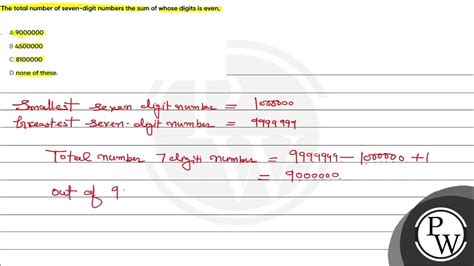 The total number of seven-digit numbers the sum of whose digits is even,
A 9000000
B 4500000
C 8100000
D none of these.
Smallest seven digit number = 1000000
Greatest seven-digit number = 9999999
Total number 7 digits number = 9999999 - 1000000 + 1
= 9000000.
out of 9
PW
PW